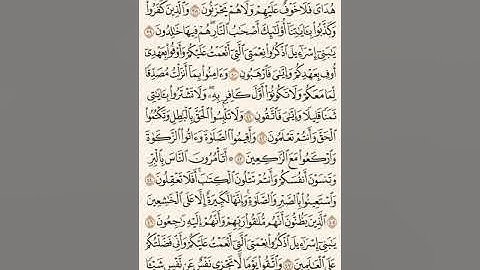 هُدَايَ فَلَا خَوْفٌ عَلَيْهِمْ وَلَا هُمْ يَحْزَنُونَ ٣٨ وَالَّذِينَ كَفَرُوا
وَكَذَّبُوا بِآيَاتِنَا أُولَٰئِكَ أَصْحَابُ النَّارِ هُمْ فِيهَا خَالِدُونَ ٣٩
يَٰبَنِي إِسْرَٰٓءِيلَ اذْكُرُوا نِعْمَتِيَ الَّتِي أَنْعَمْتُ عَلَيْكُمْ وَأَوْفُوا بِعَهْدِي
أُوفِ بِعَهْدِكُمْ وَإِيَّٰيَ فَارْهَبُونِ ٤٠ وَءَامِنُوا بِمَا أَنزَلْتُ مُصَدِّقًا
لِّمَا مَعَكُمْ وَلَا تَكُونُوا أَوَّلَ كَافِرٍ بِهِ وَلَا تَشْتَرُوا بِـَٔايَٰتِي
ثَمَنًا قَلِيلًا وَإِيَّٰيَ فَاتَّقُونِ ٤١ وَلَا تَلْبِسُوا الْحَقَّ بِالْبَٰطِلِ وَتَكْتُمُوا
الْحَقَّ وَأَنتُمْ تَعْلَمُونَ ٤٢ وَأَقِيمُوا الصَّلَوٰةَ وَءَاتُوا الزَّكَوٰةَ
وَارْكَعُوا مَعَ الرَّٰكِعِينَ ٤٣ ۞ أَتَأْمُرُونَ النَّاسَ بِالْبِرِّ
وَتَنسَوْنَ أَنفُسَكُمْ وَأَنتُمْ تَتْلُونَ الْكِتَٰبَ أَفَلَا تَعْقِلُونَ ٤٤
وَاسْتَعِينُوا بِالصَّبْرِ وَالصَّلَوٰةِ وَإِنَّهَا لَكَبِيرَةٌ إِلَّا عَلَى الْخَٰشِعِينَ
٤٥ الَّذِينَ يَظُنُّونَ أَنَّهُم مُّلَٰقُوا رَبِّهِمْ وَأَنَّهُمْ إِلَيْهِ رَٰجِعُونَ ٤٦
يَٰبَنِي إِسْرَٰٓءِيلَ اذْكُرُوا نِعْمَتِيَ الَّتِي أَنْعَمْتُ عَلَيْكُمْ وَأَنِّي فَضَّلْتُكُمْ
عَلَى الْعَٰلَمِينَ ٤٧ وَاتَّقُوا يَوْمًا لَّا تَجْزِي نَفْسٌ عَن نَّفْسٍ شَيْـًٔا